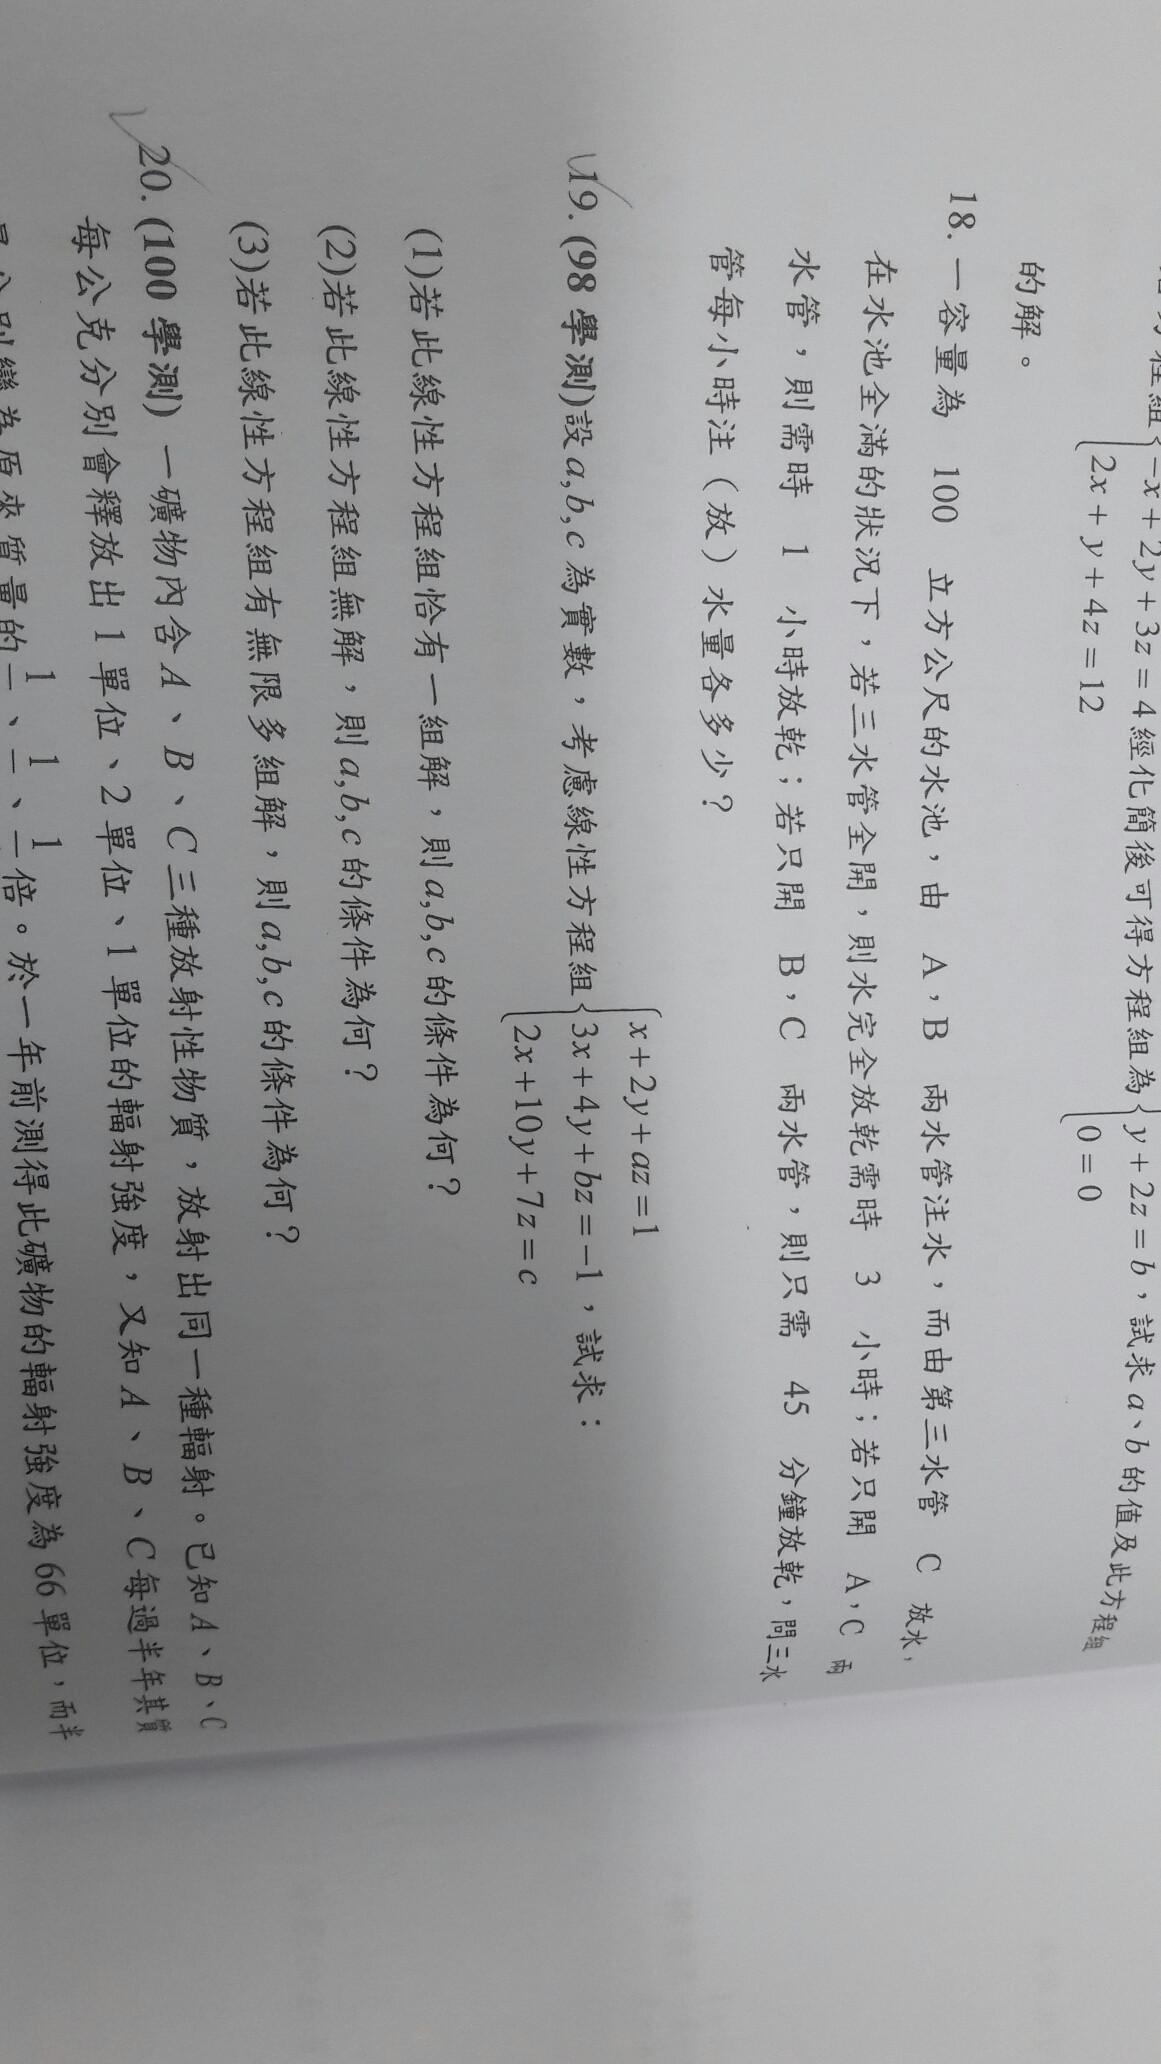 程組{−x+2y+3z=4經化簡後可得方程組為{y+2z=b，試求a、b的值及此方程組
2x+y+4z=12
0=0
的解。
18.一容量為 100 立方公尺的水池，由 A，B 兩水管注水，而由第三水管 C 放水，
在水池全滿的狀況下，若三水管全開，則水完全放乾需時 3 小時；若只開 A，C 兩
水管，則需時 1 小時放乾；若只開 B，C 兩水管，則只需 45 分鐘放乾，問三水
管每小時注（放）水量各多少？
x+2y+az=1
19.(98學測)設a,b,c為實數，考慮線性方程組{3x+4y+bz=−1，試求：
2x+10y+7z=c
(1)若此線性方程組恰有一組解，則a,b,c的條件為何？
(2)若此線性方程組無解，則a,b,c的條件為何？
(3)若此線性方程組有無限多組解，則a,b,c的條件為何？
20.(100學測)一礦物內含A、B、C三種放射性物質，放射出同一種輻射。已知A、B、C
每公克分別會釋放出1單位、2單位、1單位的輻射強度，又知A、B、C每過半年其質
量分別變為原來質量的1、1、1倍。於一年前測得此礦物的輻射強度為66單位，而半